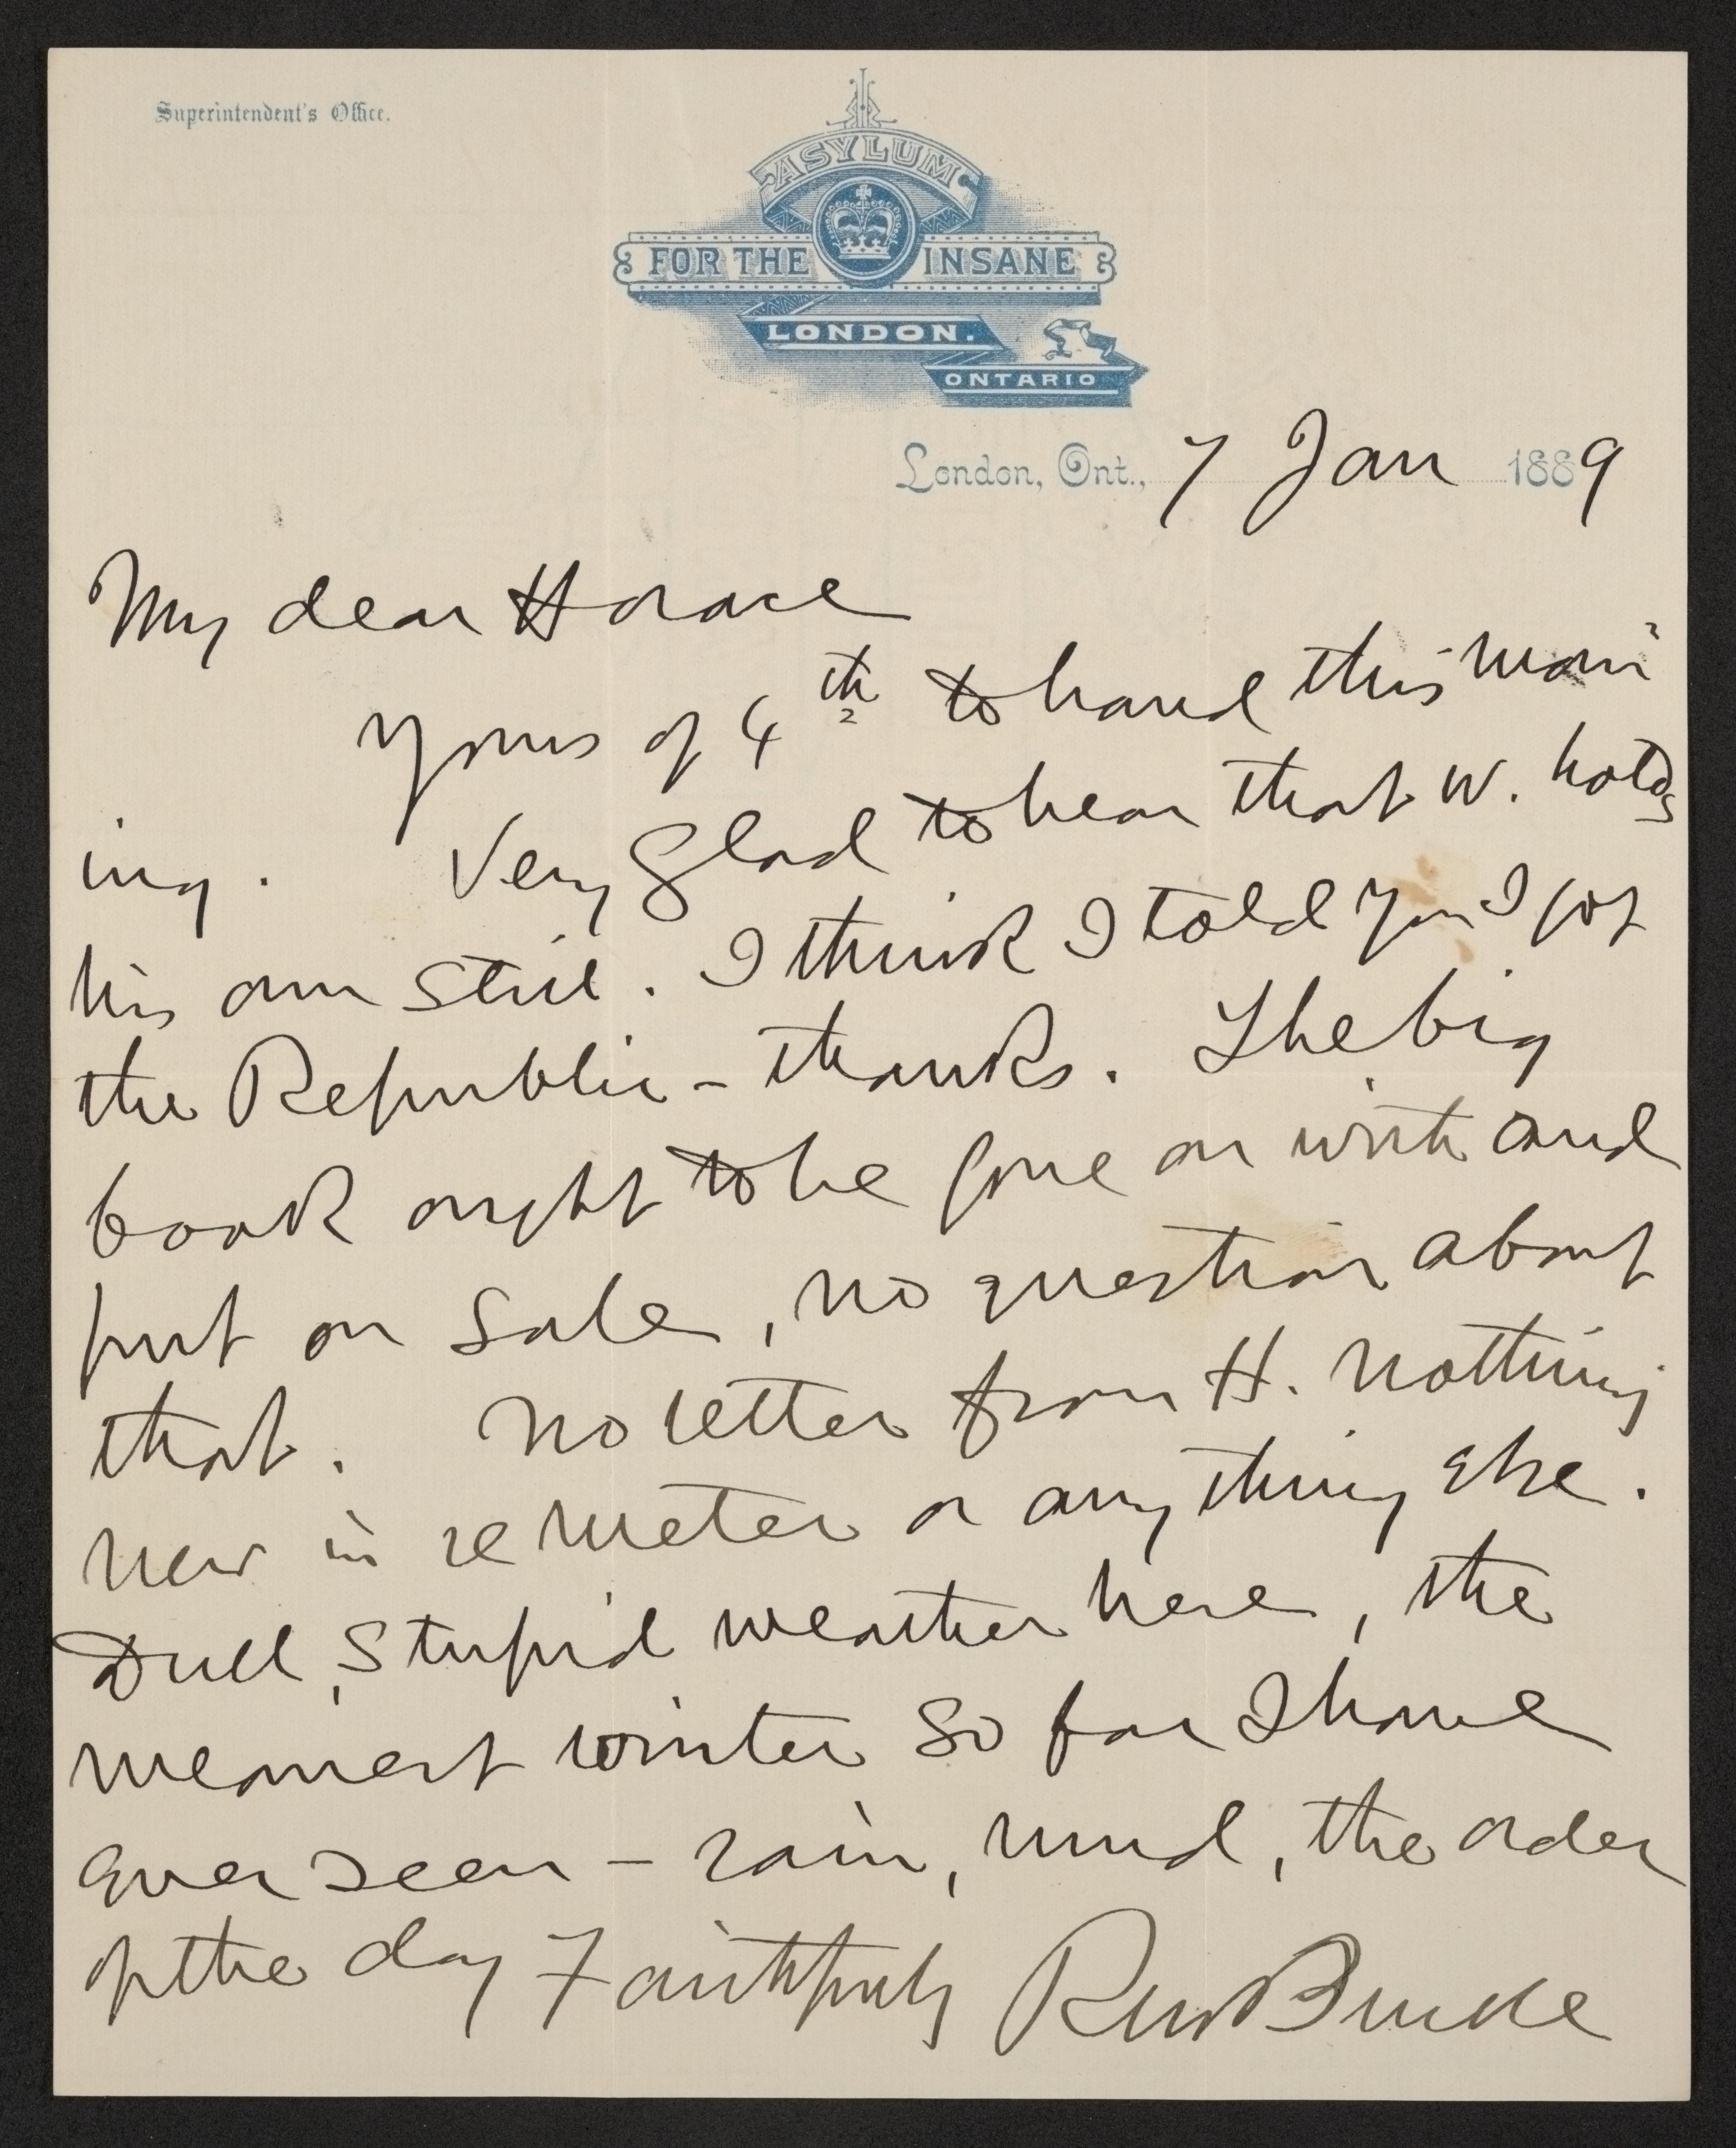 Superintendent's Office.
ASYLUM
FOR THE INSANE
LONDON.
ONTARIO
London, Ont., 7 Jan 1889
My dear Horace
Yours of 4th to hand this morn
ing. Very glad to hear that W. holds
his own still. I think I told you I got
the Republic – thanks. The big
book ought to be gone on with and
put on sale, no question about
that. No letter from H. Nothing
new in re meter or anything else.
Dull, stupid weather here, the
meanest winter so far I have
ever seen – rain, mud, the order
of the day Faithfully RM Bucke